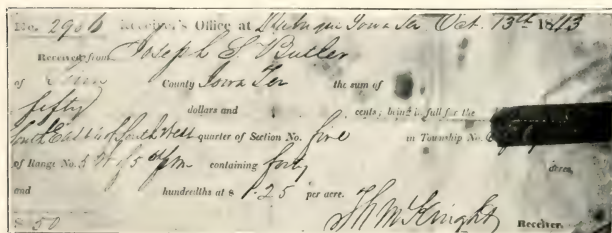 No. 2906 Receiver's Office at Dubuque Iowa Ter Oct. 13th 1843
Received from Joseph S. Butler
of Linn County Iowa Ter the sum of
fifty dollars and cents; being in full for the
South East of South West quarter of Section No. five in Township No.
of Range No. 5 W of 5 P m containing forty acres,
and hundredths at $ 1.25 per acre.
$ 50 Th McKnight Receiver.